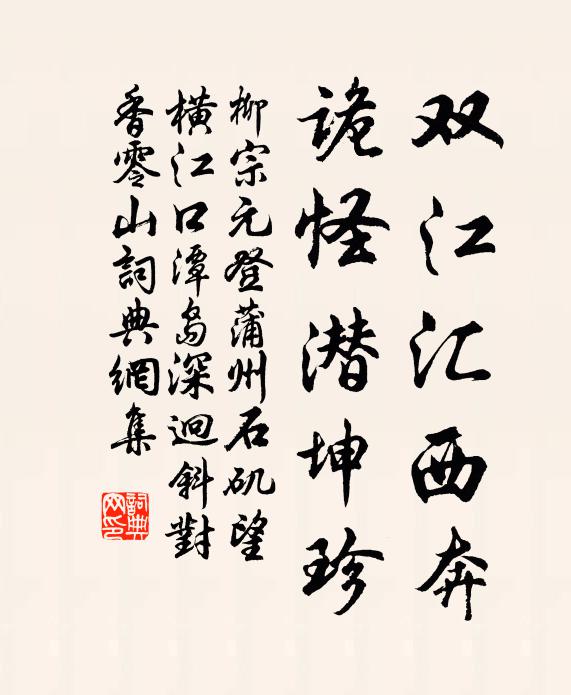 双江汇西奔
诡怪潜坤珍
柳宗元登蒲州石矶望
横江口潭岛深迥斜對
香零山詞典網集
詞典
网印